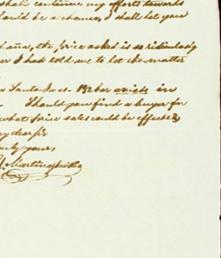 shall continue my efforts towards
would be a chance, I shall let you
the price asked is so ridiculously
I had told me to let the matter
in
Should you find a buyer for
what price sales could be effected,
my dear Sir
truly yours